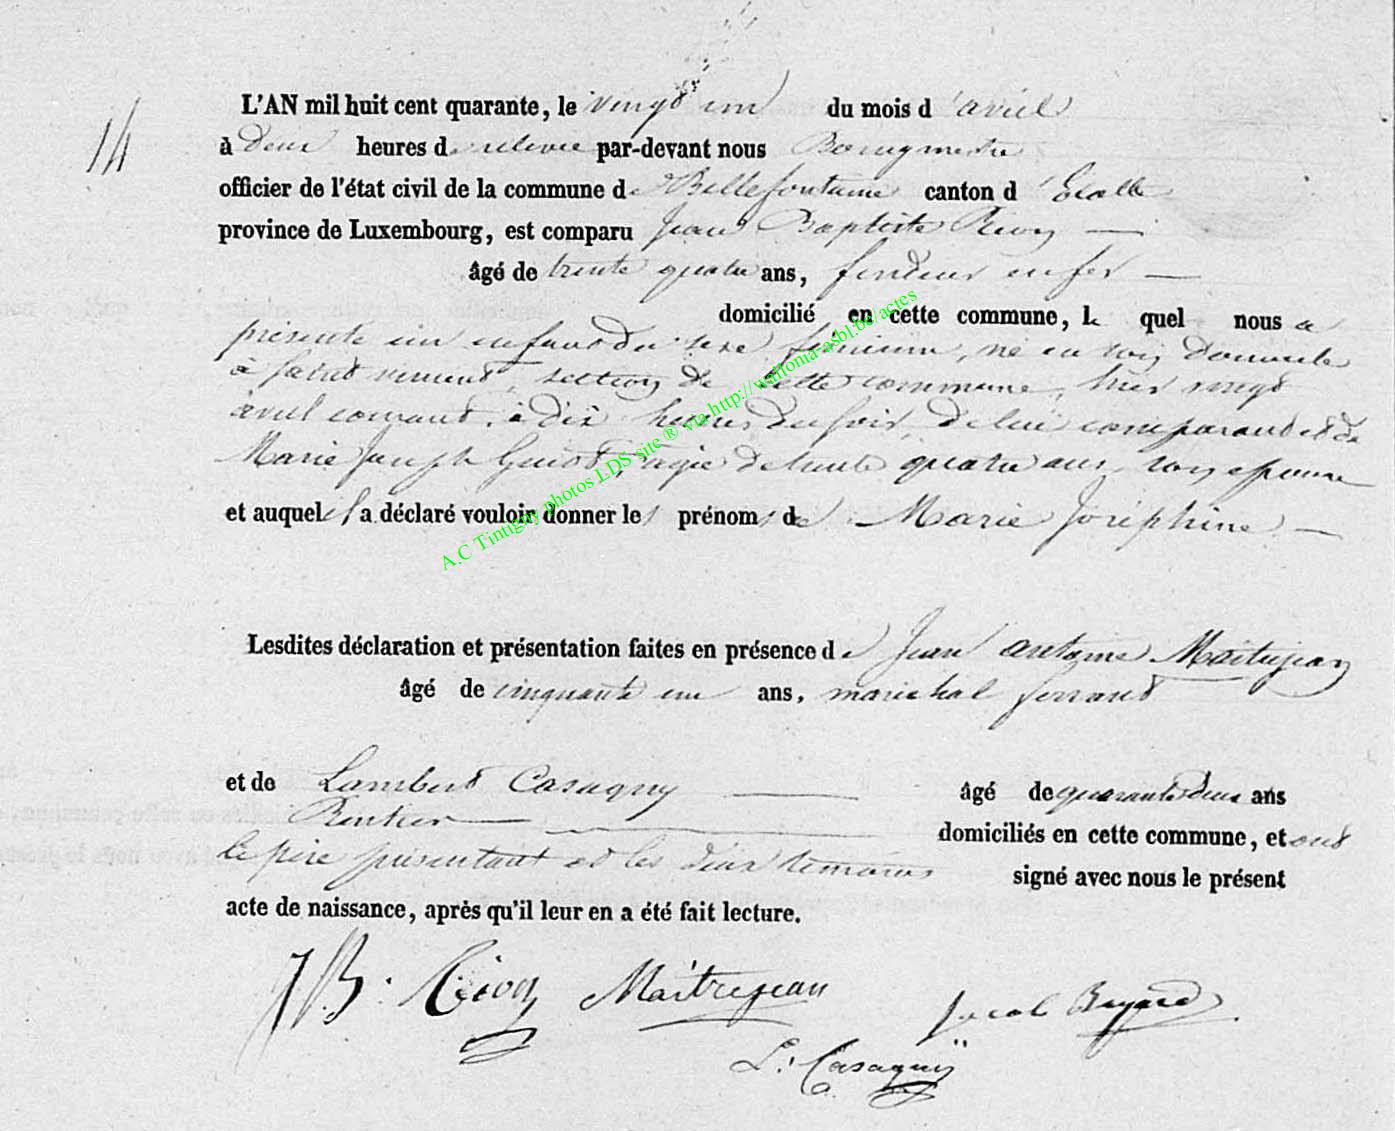 14
L'AN mil huit cent quarante, le vingt un du mois d'avril
à deux heures de relevée par-devant nous Bourgmestre
officier de l'état civil de la commune de Bellefontaine canton d'Etalle
province de Luxembourg, est comparu Jean Baptiste Rion
âgé de trente quatre ans, fendeur en fer
domicilié en cette commune, lequel nous a
présenté un enfant du sexe féminin, né en son domicile
à Saint vincent section de cette commune, hier vingt
avril courant, à dix heures du soir, de lui comparant et de
Marie Joseph Guiot, agée de trente quatre ans, son epouse
et auquel il a déclaré vouloir donner les prénoms de Marie Joséphine
Lesdites déclaration et présentation faites en présence de Jean antoine Maitrejean
âgé de cinquante un ans, marechal ferrant
et de Lambert Casagny âgé de quarante deux ans
Rentier domiciliés en cette commune, et ont
le père présentant et les deux témoins signé avec nous le présent
acte de naissance, après qu'il leur en a été fait lecture.
JB. Rion Maitrejean
Jacob Bayard
L. Casagny
A.C Tintigny photos LDS site ® via http://wallonia-asbl.be/actes